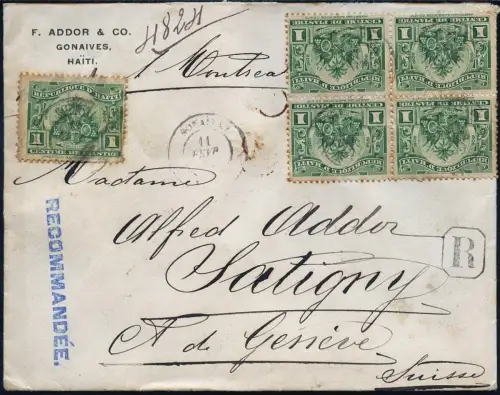 F. ADDOR & CO.
GONAIVES,
HAÏTI.
REPUBLIQUE D'HAITI
1 1
CENTIME DE PIASTRE
REPUBLIQUE D'HAITI
1 1
CENTIME DE PIASTRE
REPUBLIQUE D'HAITI
1 1
CENTIME DE PIASTRE
REPUBLIQUE D'HAITI
1 1
CENTIME DE PIASTRE
REPUBLIQUE D'HAITI
1 1
CENTIME DE PIASTRE
11
Madame
Alfred Addor
Satigny
R
RECOMMANDÉE.
Ct de Genève
Suisse